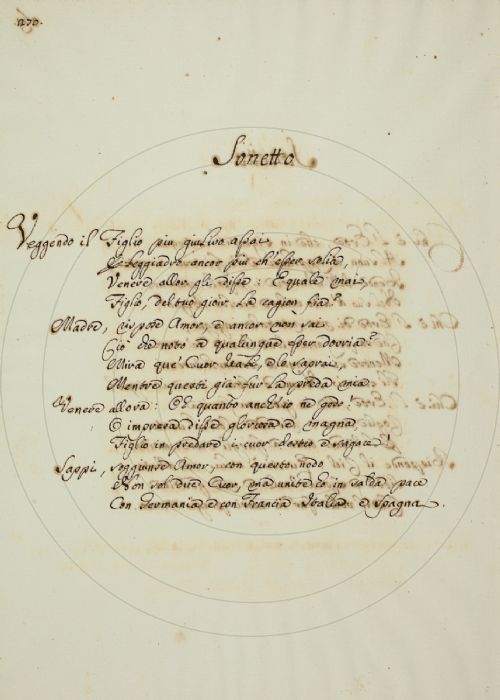 Sonetto
Veggendo il Figlio piu giulivo assai
E leggiadro ancor più ch'esser solia,
Venere allor gli disse: E quale mai,
Figlio, del tuo gioir la cagion fia?
Madre, rispose Amor, e amor non sai
Ciò che noto a qualunque esser dovria?
Mira que' Cuor, e lo saprai,
Mentre questi già fur la preda mia.
Venere allora: Oh quanto anch'io ne godo!
O impresa disse gloriosa e magna
Figlio in predare i cuor destro e sagace!
Sappi, soggiunse Amor, con questo nodo
Non sol due Cuor, ma unite ho in salda pace
Con Germania e con Francia Italia e Spagna.